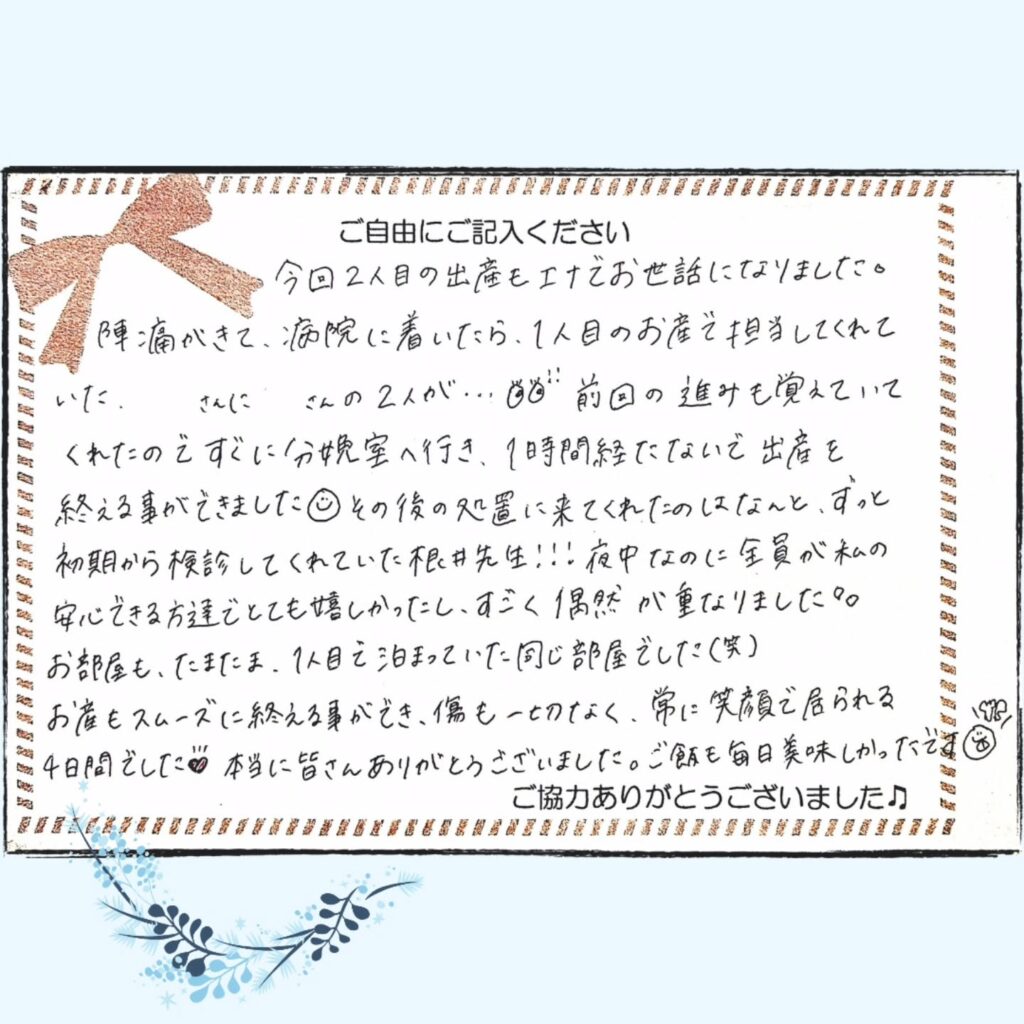 ご自由にご記入ください
今回2人目の出産もエナでお世話になりました。
陣痛がきて、病院に着いたら、1人目のお産で担当してくれて
いた、 さんに さんの2人が…!! 前回の進みも覚えていて
くれたのですぐに分娩室へ行き、1時間経たないで出産を
終える事ができました その後の処置に来てくれたのはなんと、ずっと
初期から検診してくれていた根井先生!!!夜中なのに全員が私の
安心できる方達でとても嬉しかったし、すごく偶然が重なりました。
お部屋も、たまたま、1人目で泊まっていた同じ部屋でした(笑)
お産もスムーズに終える事ができ、傷も一切なく、常に笑顔で居られる
4日間でした 本当に皆さんありがとうございました。ご飯も毎日美味しかったです
ご協力ありがとうございました♫